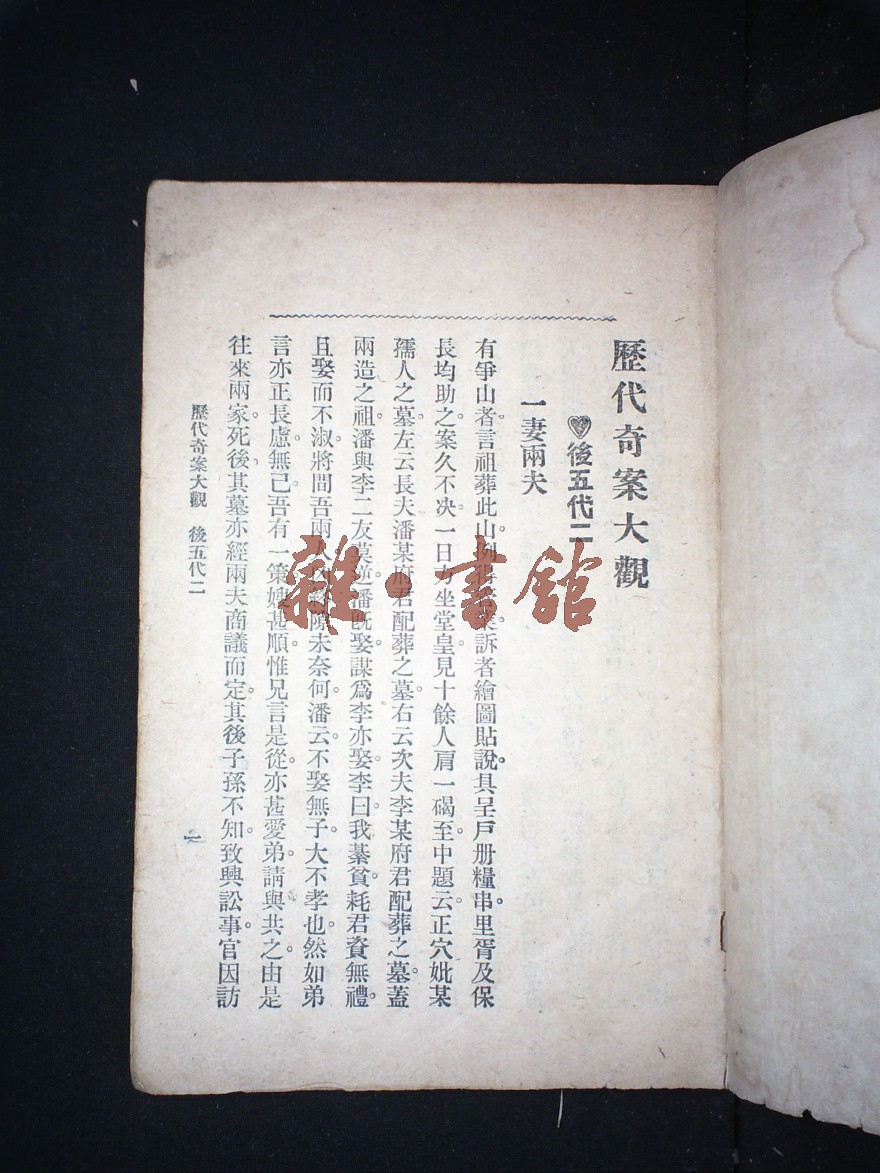 歷代奇案大觀
後五代二
一妻兩夫
有爭山者言祖葬此山例得管業訴者繪圖貼說具呈戶册糧串里胥及保
長均助之案久不決一日方坐堂皇見十餘人肩一碣至中題云正穴妣某
孺人之墓左云長夫潘某府君配葬之墓右云次夫李某府君配葬之墓蓋
兩造之祖潘與李二友莫逆潘既娶謀爲李亦娶李曰我綦貧耗君資無禮
且娶而不淑將間吾兩人 未奈何潘云不娶無子大不孝也然如弟
言亦正長慮無已吾有一策嫂甚順惟兄言是從亦甚愛弟請與共之由是
往來兩家死後其墓亦經兩夫商議而定其後子孫不知致興訟事官因訪
歷代奇案大觀 後五代二
一
雜·書館